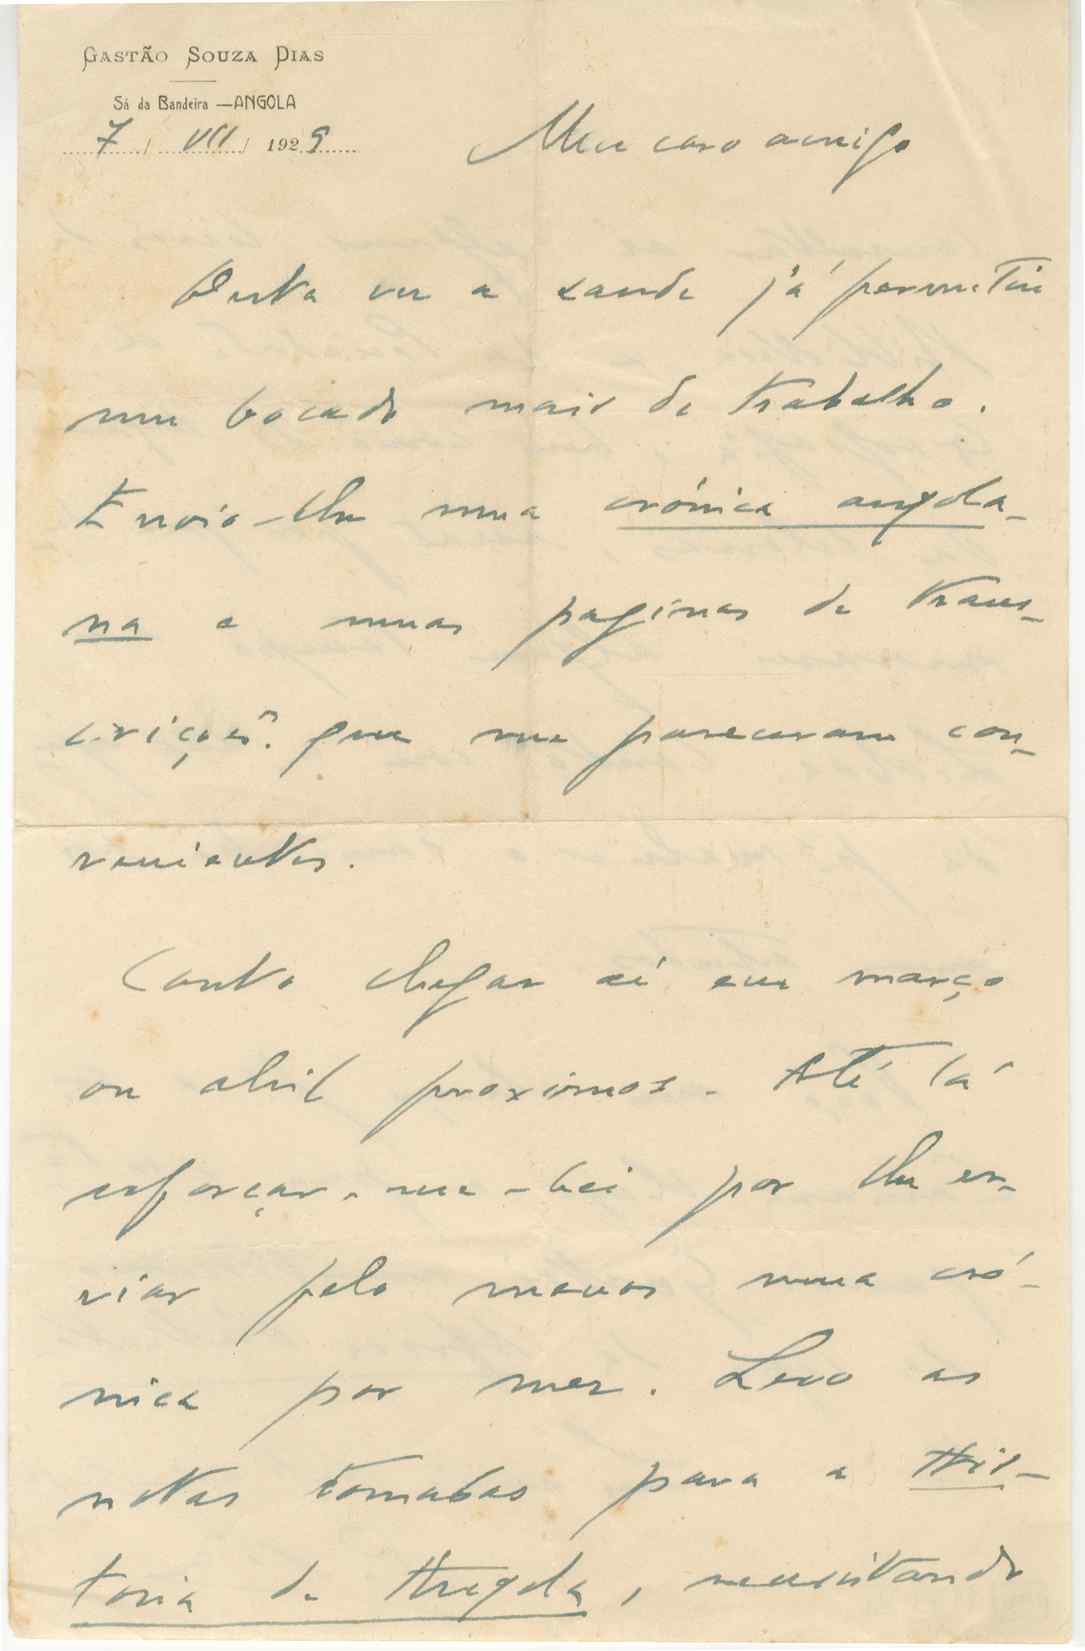 GASTÃO SOUZA DIAS
Sá da Bandeira —ANGOLA
7 / VII / 1929
Meu caro amigo
Desta vez a saude já permitiu
um bocado mais de trabalho.
Envio-lhe uma crónica angola-
na e umas paginas de trans-
crições que me pareceram con-
venientes.
Conto chegar aí em março
ou abril proximos. Até lá
esforçar-me-hei por lhe en-
viar pelo menos uma cró-
nica por mez. Levo as
notas tomadas para a His-
toria de Angola, necessitando